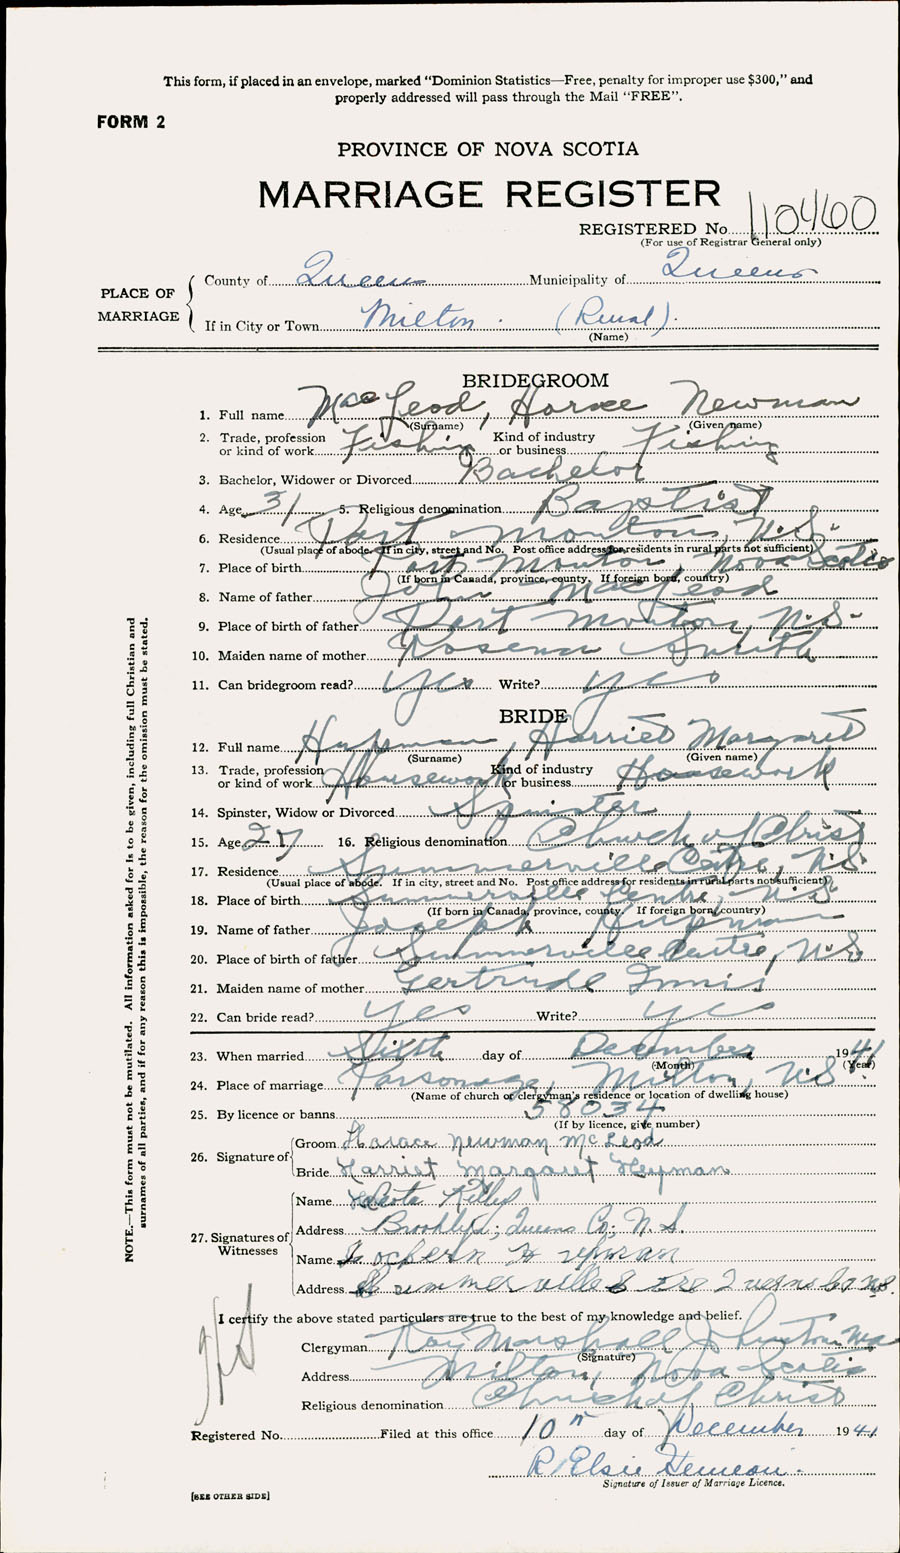 This form, if placed in an envelope, marked "Dominion Statistics—Free, penalty for improper use $300," and
properly addressed will pass through the Mail "FREE".
FORM 2
PROVINCE OF NOVA SCOTIA
MARRIAGE REGISTER
REGISTERED No. 110460
(For use of Registrar General only)
PLACE OF MARRIAGE
County of Queens Municipality of Queens
If in City or Town Milton. (Rural).
(Name)
BRIDEGROOM
1. Full name MacLeod, Horace Newman
(Surname) (Given name)
2. Trade, profession or kind of work Fishing Kind of industry or business Fishing
3. Bachelor, Widower or Divorced Bachelor
4. Age 31 5. Religious denomination Baptist
6. Residence Port Mouton, N.S.
(Usual place of abode. If in city, street and No. Post office address for residents in rural parts not sufficient)
7. Place of birth Port Mouton, Nova Scotia
(If born in Canada, province, county. If foreign born, country)
8. Name of father John MacLeod
9. Place of birth of father Port Mouton, N.S.
10. Maiden name of mother Rosena Smith
11. Can bridegroom read? yes Write? yes
BRIDE
12. Full name Hupman, Harriet Margaret
(Surname) (Given name)
13. Trade, profession or kind of work Housework Kind of industry or business Housework
14. Spinster, Widow or Divorced Spinster
15. Age 27 16. Religious denomination Church of Christ
17. Residence Summerville Centre, N.S.
(Usual place of abode. If in city, street and No. Post office address for residents in rural parts not sufficient)
18. Place of birth Summerville Centre, N.S.
(If born in Canada, province, county. If foreign born, country)
19. Name of father Joseph Hupman
20. Place of birth of father Summerville Centre, N.S.
21. Maiden name of mother Gertrude Innis
22. Can bride read? yes Write? yes
23. When married Sixth day of December 1941
(Month) (Year)
24. Place of marriage Parsonage, Milton, N.S.
(Name of church or clergyman's residence or location of dwelling house)
25. By licence or banns 58034
(If by licence, give number)
26. Signature of
Groom Horace Newman McLeod
Bride Harriet Margaret Hupman
27. Signatures of Witnesses
Name Kelly
Address Brooklyn, Queens Co; N.S.
Name Hupman
Address Summerville Centre Queens Co N.S.
I certify the above stated particulars are true to the best of my knowledge and belief.
Clergyman Roy Marshall
(Signature)
Address Milton, Nova Scotia
Religious denomination Church of Christ
Registered No. Filed at this office 10th day of December 1941
R. Elsie
Signature of Issuer of Marriage Licence.
[SEE OTHER SIDE]
NOTE.—This form must not be mutilated. All information asked for is to be given, including full Christian and
surnames of all parties, and if for any reason this is impossible, the reason for the omission must be stated.